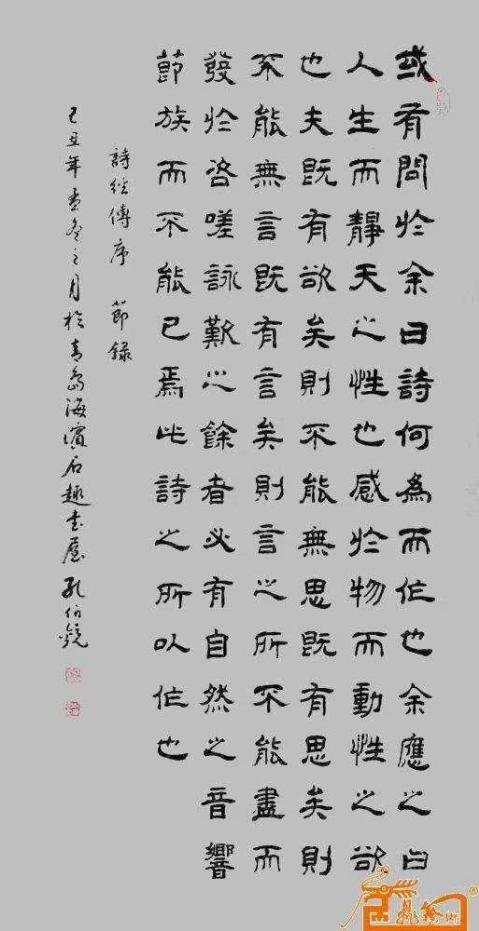 或有問於余曰詩何為而作也余應之曰
人生而靜天之性也感於物而動性之欲
也夫既有欲矣則不能無思既有思矣則
不能無言既有言矣則言之所不能盡而
發於咨嗟詠歎之餘者必有自然之音響
節族而不能已焉此詩之所以作也
詩經傳序 節錄
己丑年孟冬之月於青島海濱石趣書屋孔伯